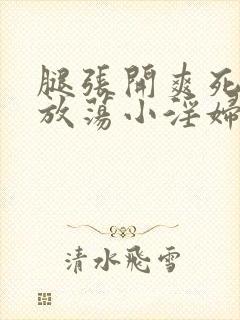 腿張開爽死
放蕩小淫婦
清水飛雪